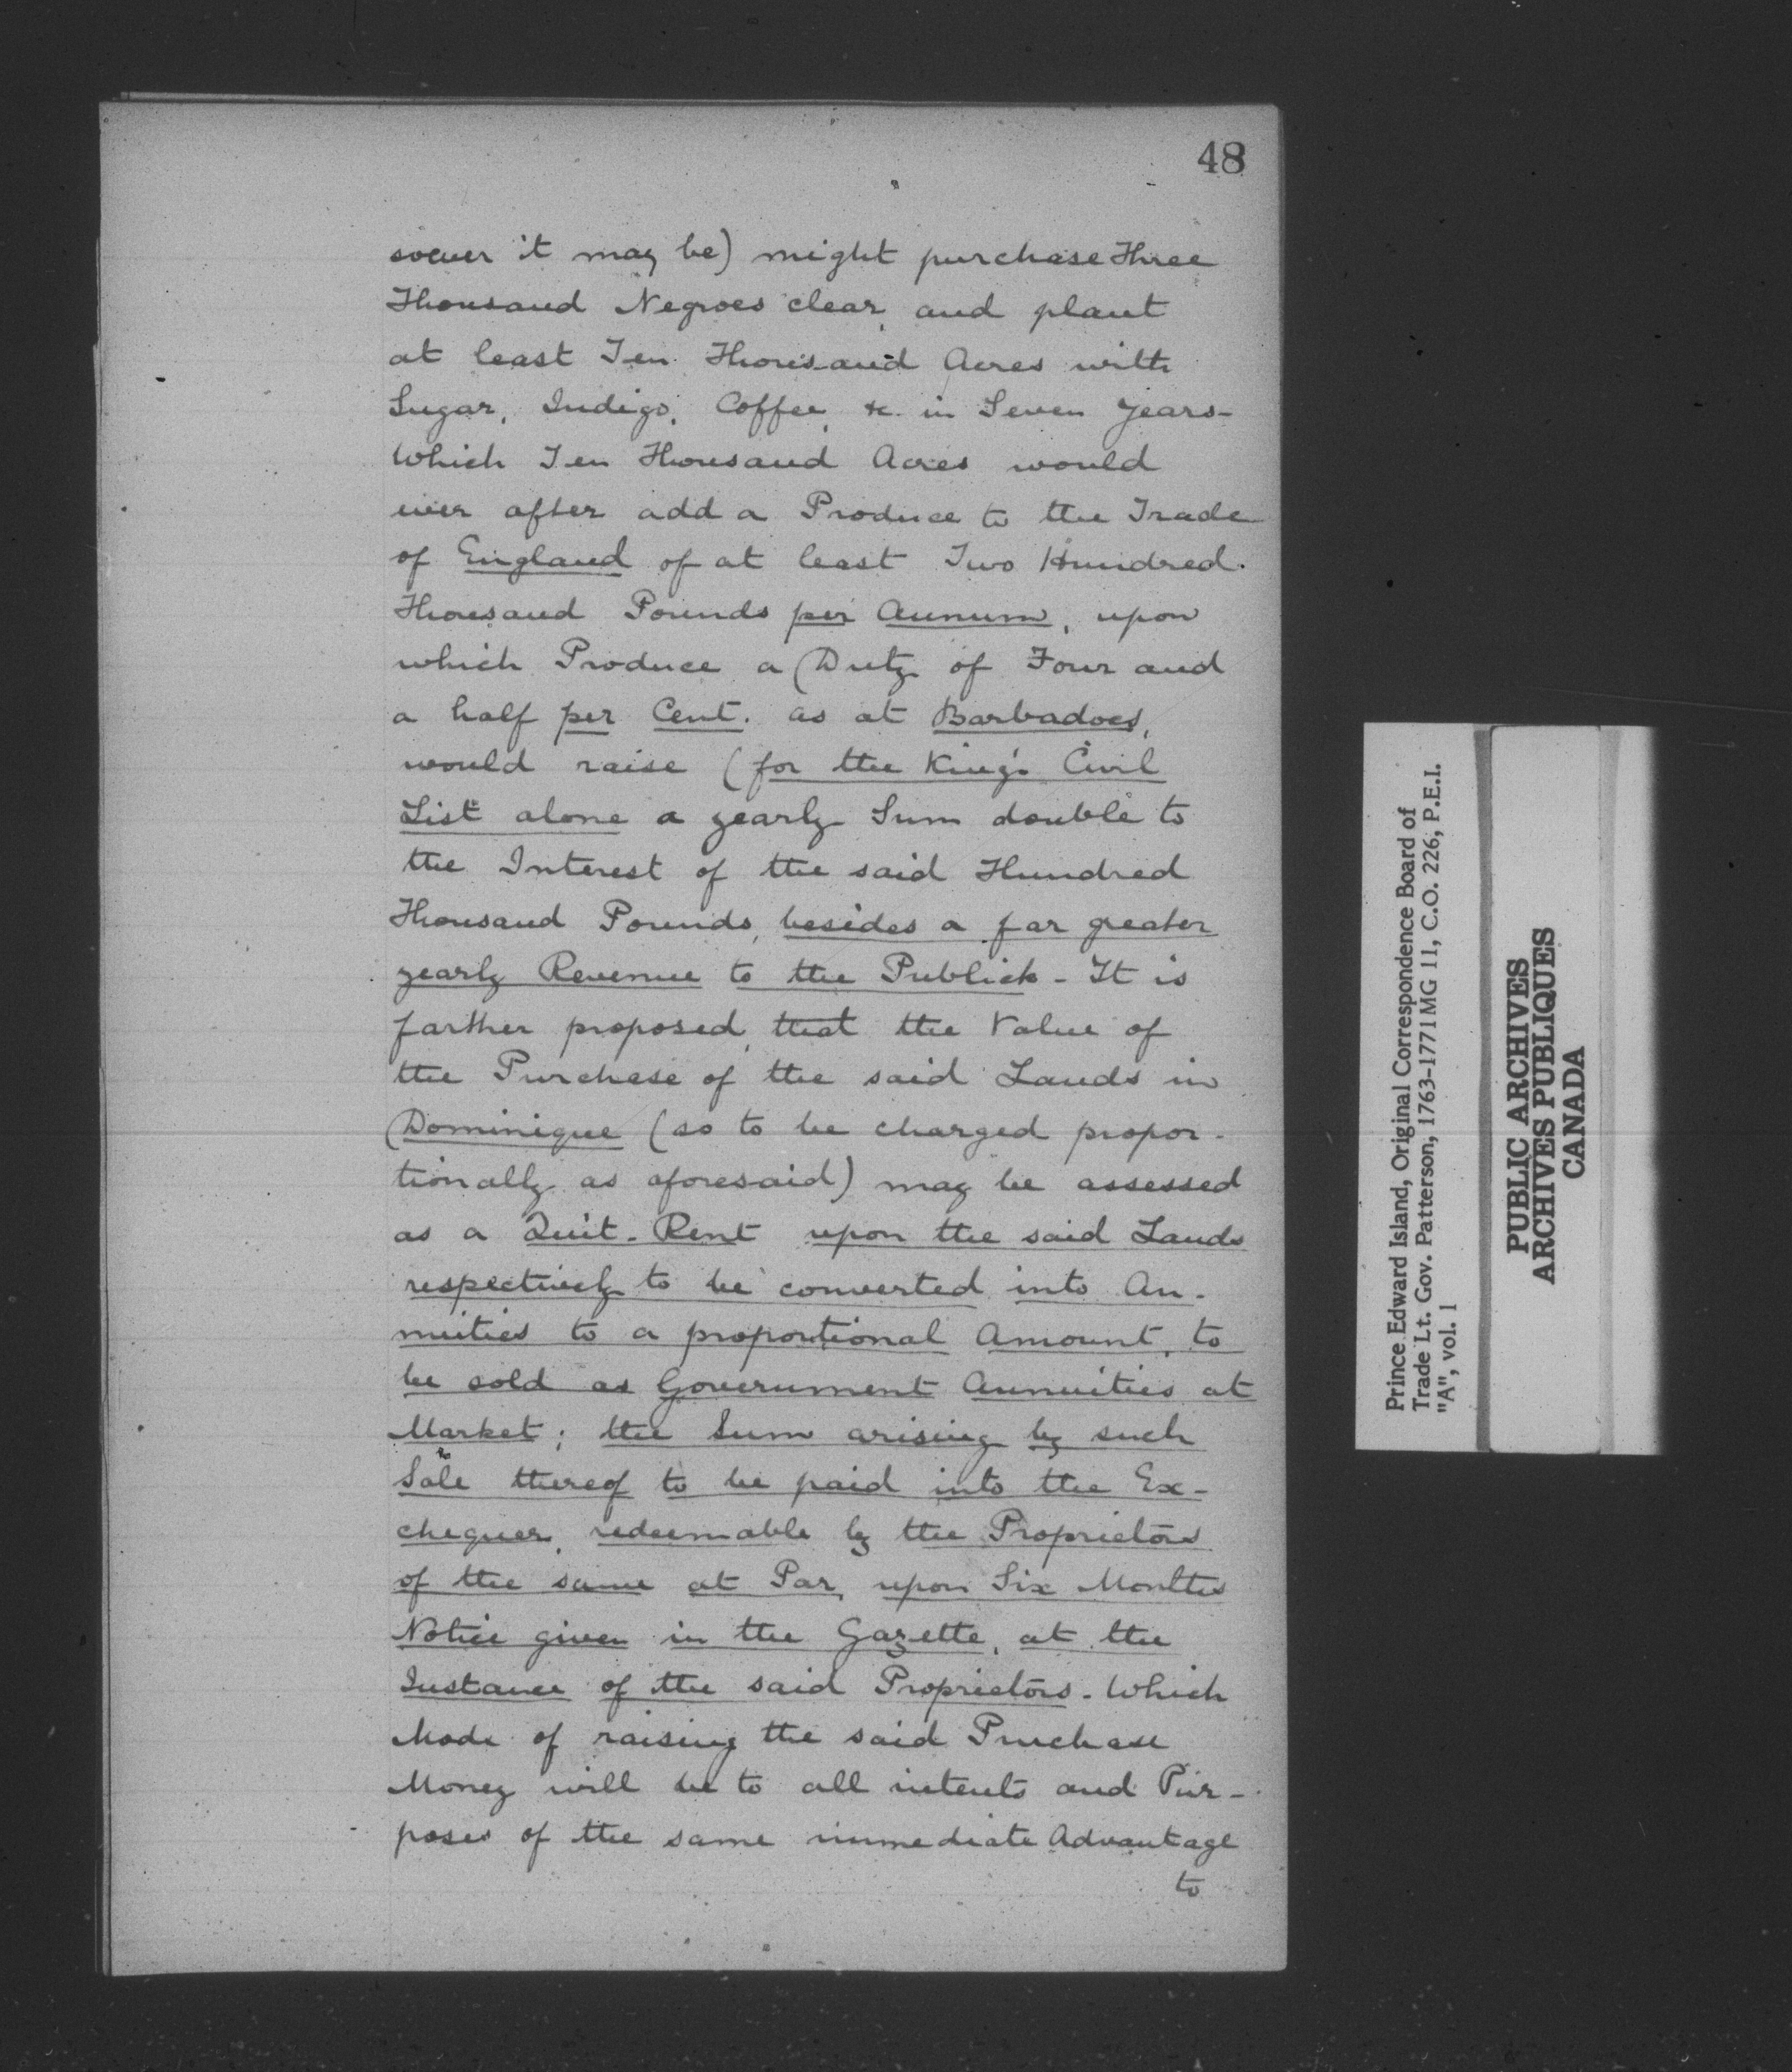 48
soever it may be) might purchase Three
Thousand Negroes clear, and plant
at least Ten Thousand Acres with
Sugar, Indigo, Coffee, &c. in Seven Years-
Which Ten Thousand Acres would
ever after add a Produce to the Trade
of England of at least Two Hundred
Thousand Pounds per Annum, upon
which Produce a Duty of Four and
a half per Cent. as at Barbadoes,
would raise (for the King's Civil
List alone a yearly Sum double to
the Interest of the said Hundred
Thousand Pounds, besides a far greater
yearly Revenue to the Publick - It is
farther proposed, that the Value of
the Purchase of the said Lands in
Dominique (so to be charged propor-
tionally as aforesaid) may be assessed
as a Quit-Rent upon the said Lands
respectively to be converted into An-
nuities to a proportional Amount, to
be sold as Government Annuities at
Market; the Sum arising by such
Sale thereof to be paid into the Ex-
chequer, redeemable by the Proprietors
of the same at Par, upon Six Months
Notice given in the Gazette, at the
Instance of the said Proprietors. Which
Mode of raising the said Purchase
Money will be to all intents and Pur-
poses of the same immediate Advantage
to
Prince Edward Island, Original Correspondence Board of
Trade Lt. Gov. Patterson, 1763-1771 MG 11, C.O. 226, P.E.I.
"A", vol. 1
PUBLIC ARCHIVES
ARCHIVES PUBLIQUES
CANADA